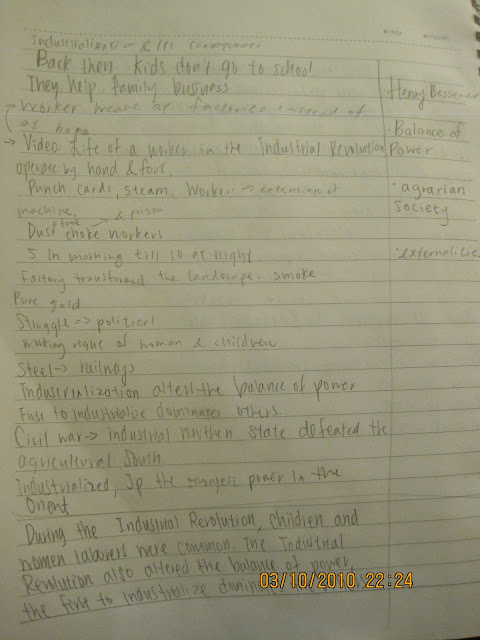 Industrialization & Its Consequences
Back then kids don't go to school
They help family business
Worker weave at factories instead of
at home
Video: Life of a worker in the Industrial Revolution
operate by hand & foot.
Punch cards, steam. Worker -> extension of
machine.
& prison
Dust choke workers
5 In morning till 10 at night
Factory transformed the landscape. smoke
Pure gold
Struggle => political
working right of woman & children
Steel -> railways
Industrialization alter the balance of power
First to industrialize dominates others.
Civil war -> industrial northern state defeated the
agricultural South.
Industrialized, Jp the strongest power in the
Orient
During the Industrial Revolution, children and
women laborers were common. The Industrial
Revolution also altered the balance of power,
the first to industrialize dominate
· Henry Bessemer
· Balance of
Power
· agrarian
society
· externalities
03/10/2010 22:24